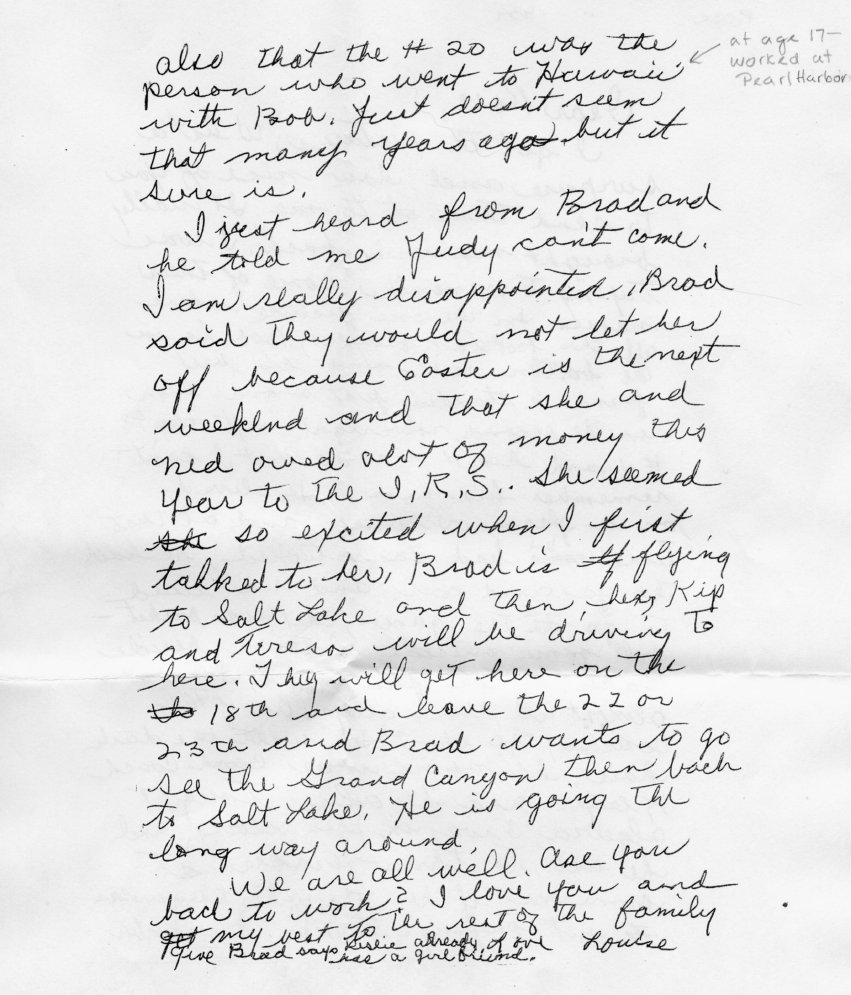 also that the # 20 was the
person who went to Hawaii
with Bob. Just doesn't seem
that many years ago but it
sure is.
at age 17-
worked at
Pearl Harbor
I just heard from Brad and
he told me Judy can't come.
I am really disappointed. Brad
said they would not let her
off because Easter is the next
weekend and that she and
ned owed alot of money this
year to the I.R.S.. She seemed
she so excited when I first
talked to her. Brad is flying
to Salt Lake and then, Kip
and Teresa will be driving to
here. They will get here on the
the 18th and leave the 22 or
23th and Brad wants to go
see the Grand Canyon then back
to Salt Lake. He is going the
long way around.
We are all well. Are you
back to work? I love you and
my best to the rest of the family
Give Love Louise
Brad says already
has a girlfriend.